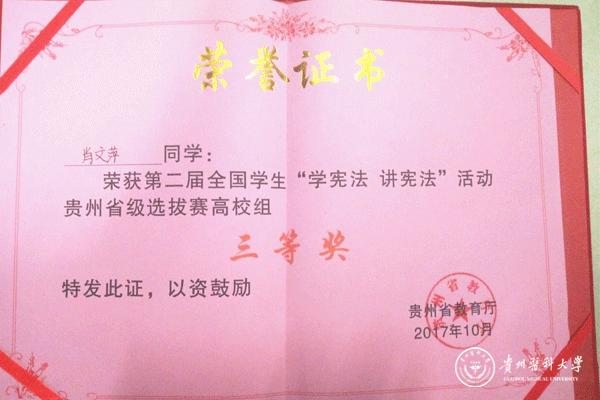 荣誉证书
肖文萍 同学：
荣获第二届全国学生“学宪法 讲宪法”活动
贵州省级选拔赛高校组
三等奖
特发此证，以资鼓励
贵州省教育厅
2017年10月
贵州医科大学
GUIZHOU MEDICAL UNIVERSITY